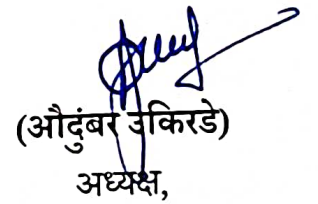 (औदुंबर उकिरडे)
अध्यक्ष,